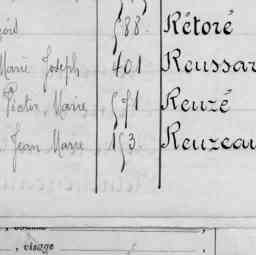 588. Rétoré
Marie Joseph 401 Reussar
Victor Marie 571 Reuzé
Jean Marie 153. Reuzeau
, visage